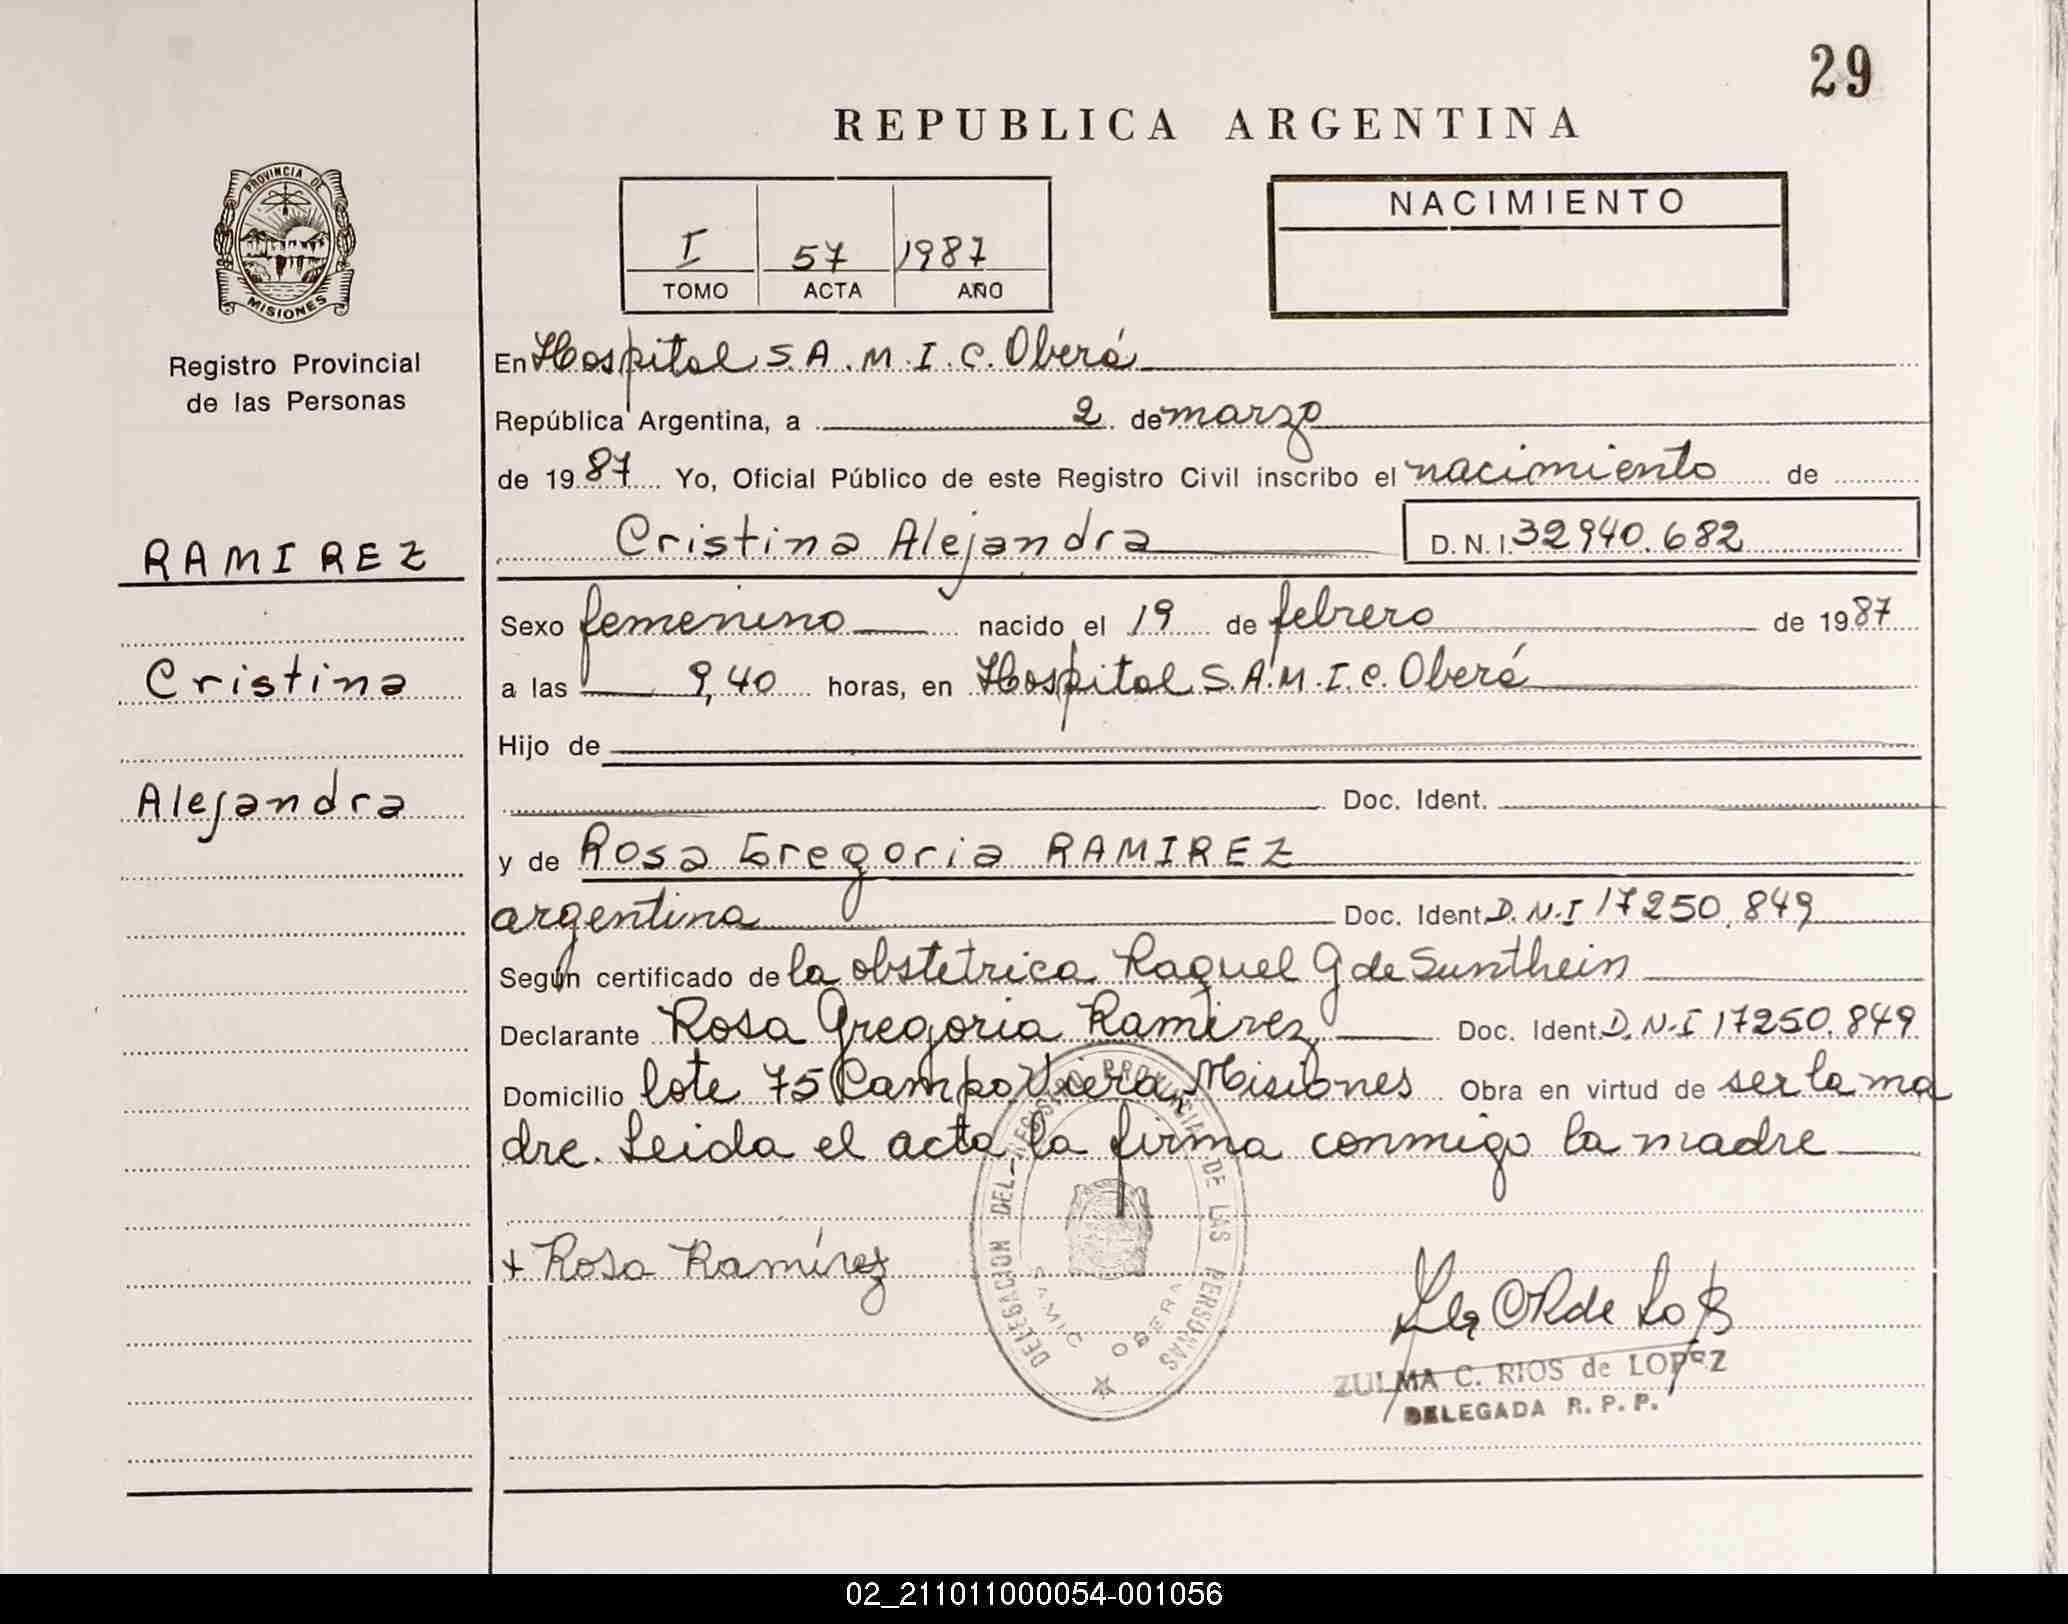 29
REPUBLICA ARGENTINA
PROVINCIA DE
MISIONES
Registro Provincial
de las Personas
I 57 1987
TOMO ACTA AÑO
NACIMIENTO
En Hospital S.A.M.I.C. Oberá
República Argentina, a 2 de marzo
de 1987 Yo, Oficial Público de este Registro Civil inscribo el nacimiento de
Cristina Alejandra D.N.I. 32940.682
RAMIREZ
Cristina
Alejandra
Sexo femenino nacido el 19 de febrero de 1987
a las 9,40 horas, en Hospital S.A.M.I.C. Oberá
Hijo de
Doc. Ident.
y de Rosa Gregoria RAMIREZ
argentina Doc. Ident. D.N.I 17250.849
Según certificado de la obstetrica Raquel G de Sunthein
Declarante Rosa Gregoria Ramirez Doc. Ident. D.N.I 17250.849
Domicilio lote 75 Campo Viera, Misiones Obra en virtud de ser la ma
dre. Leida el acta la firma conmigo la madre
+ Rosa Ramírez
DELEGACION DEL REGISTRO PROVINCIAL DE LAS PERSONAS
SAMIC OBERA
ZULMA C. RIOS de LOPEZ
DELEGADA R.P.P.
02_211011000054-001056